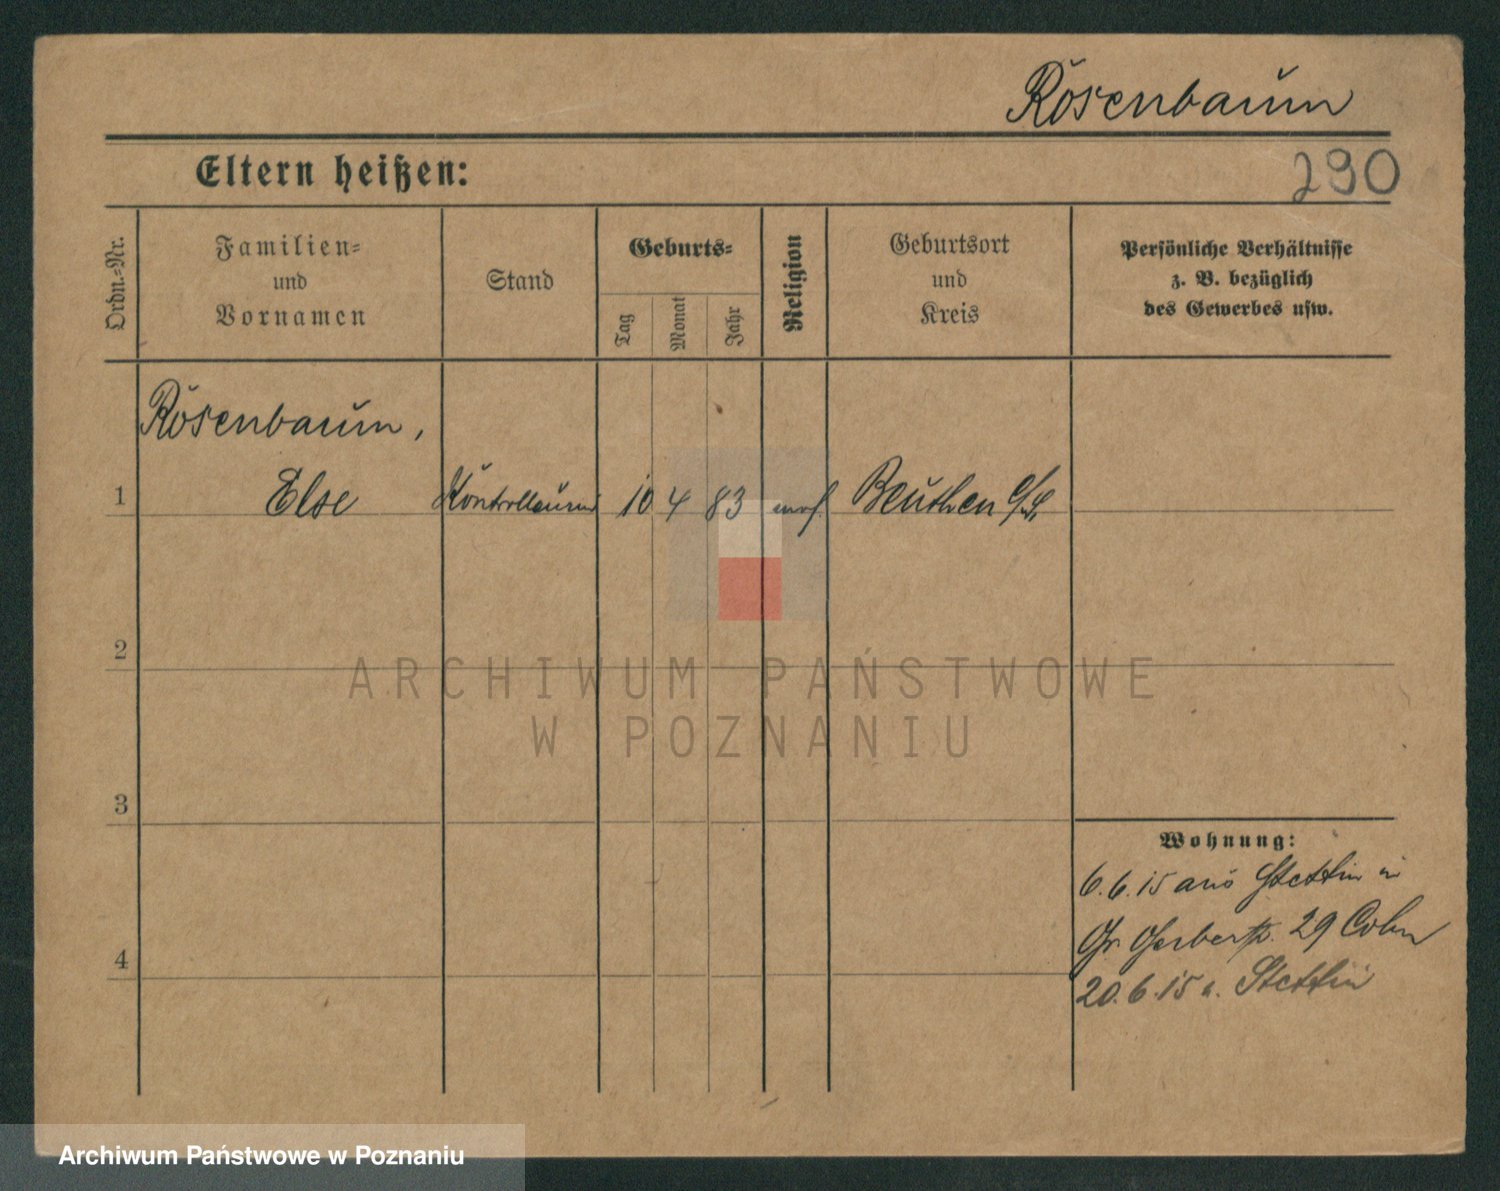 Rosenbaum
Eltern heißen:
290
Ordn.-Nr.
Familien-
und
Vornamen
Stand
Geburts-
Tag
Monat
Jahr
Religion
Geburtsort
und
Kreis
Persönliche Verhältnisse
z. B. bezüglich
des Gewerbes usw.
Rosenbaum,
1 Else 10 4 83 mos. Beuthen O/S.
2
3
4
Wohnung:
6.6.15 aus Stettin in
Gr. Gerberstr. 29 Cohn
20.6.15 n. Stettin
ARCHIWUM PAŃSTWOWE
W POZNANIU
Archiwum Państwowe w Poznaniu